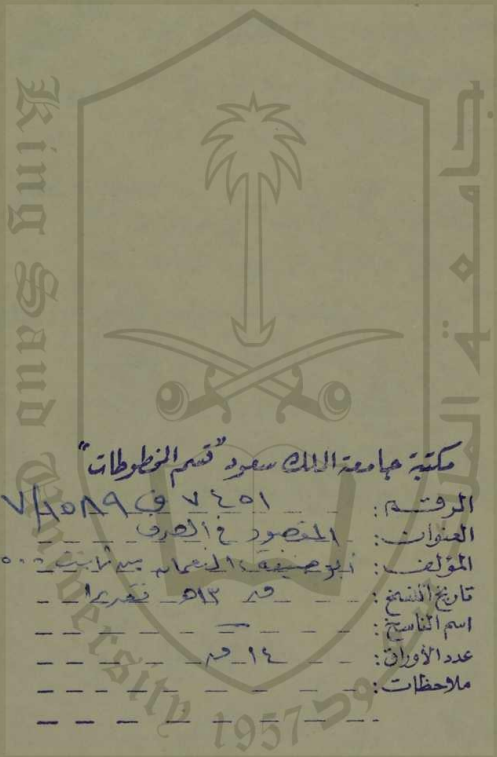 King Saud University
جامعة الملك سعود
1957
مكتبة جامعة الملك سعود "قسم المخطوطات"
الرقم: ٧٤٥١ ف ٧/١٥٨٩
العنوان: المقصود في الصرف
المؤلف: أبو حنيفة، النعمان بن ثابت - ١٥٠
تاريخ النسخ: ق ١٣هـ تقديرا
اسم الناسخ: —
عدد الأوراق: ١٤ ق
ملاحظات: